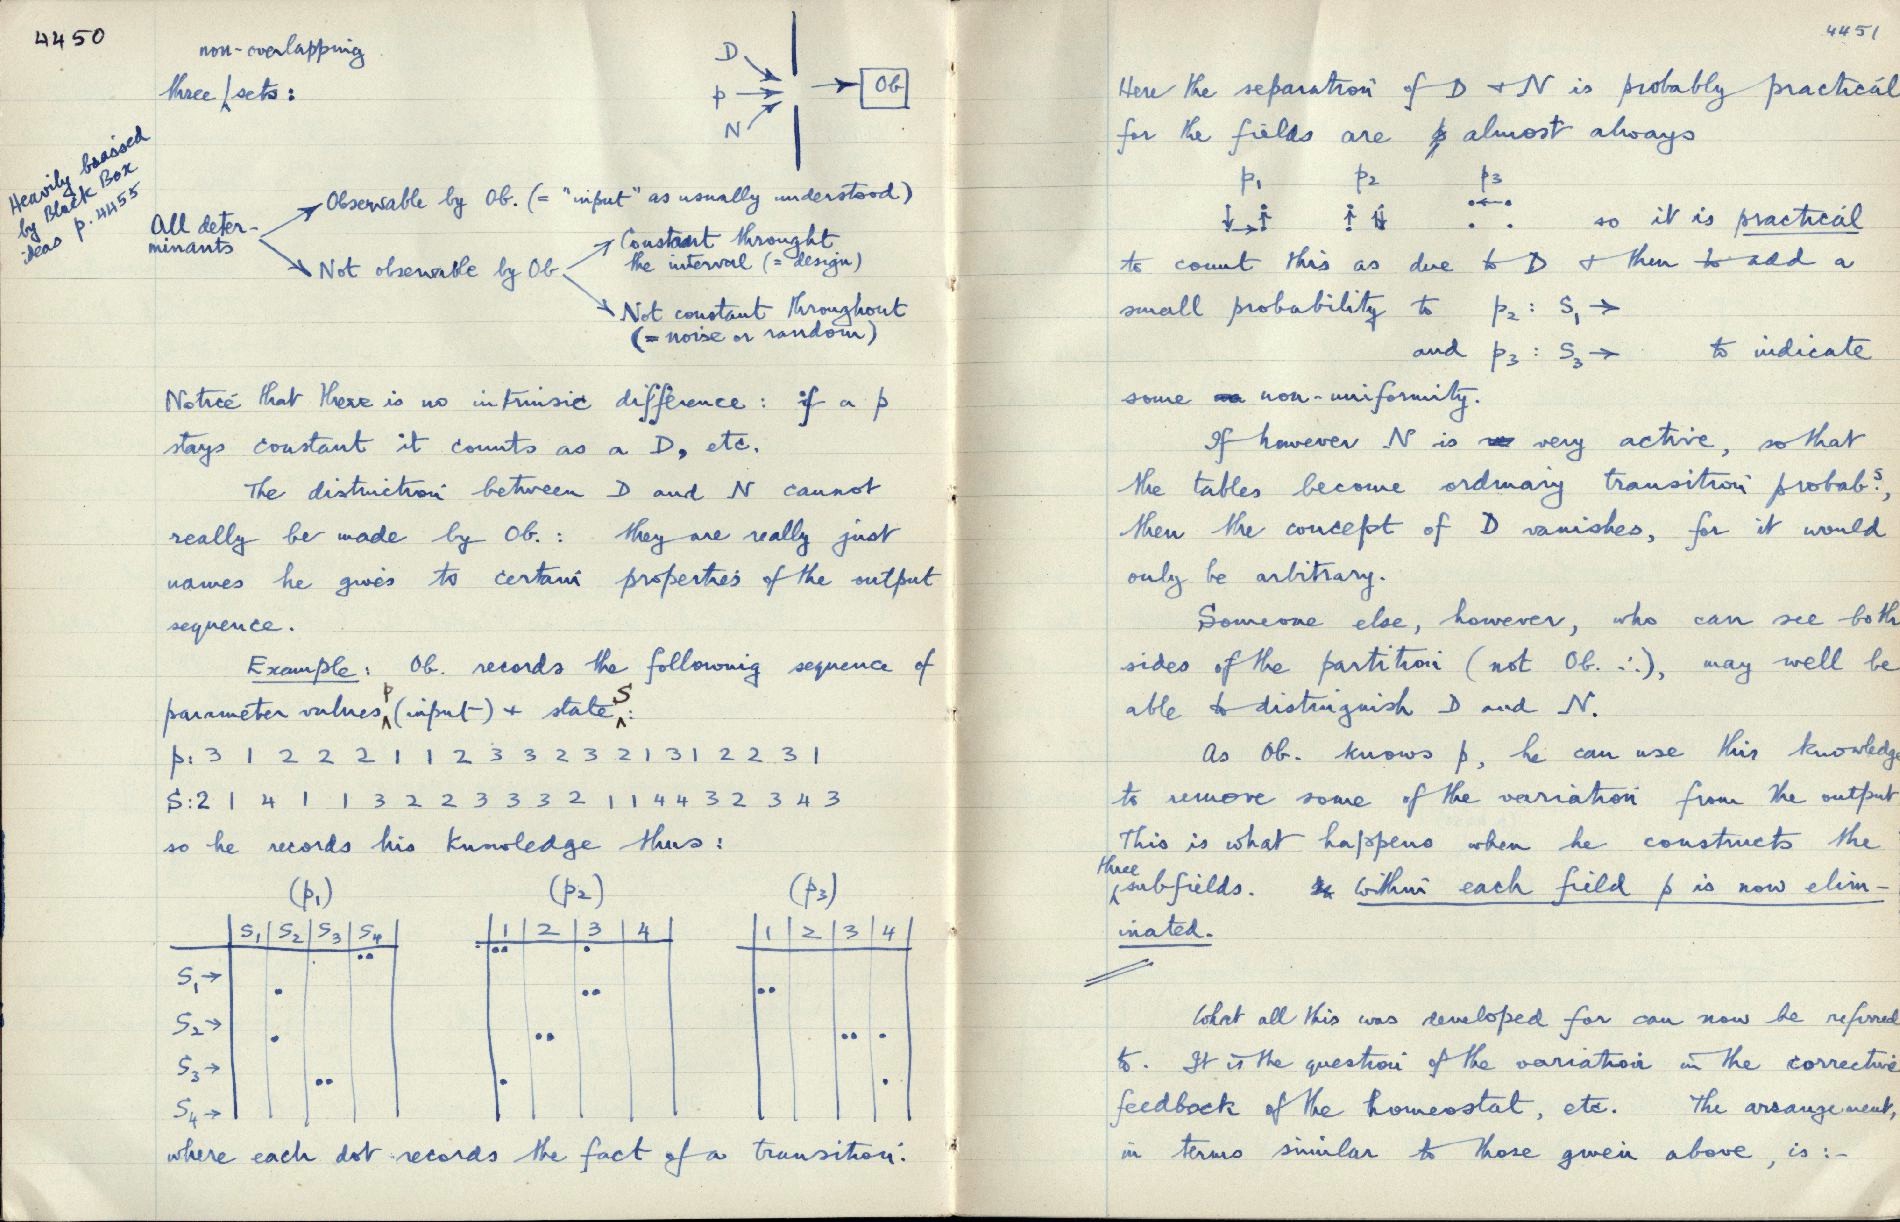 4450
non-overlapping
three sets:
D
p
N
Ob
Heavily
by Black Box
ideas p. 4455
All deter-
minants
Observable by Ob. (= "input" as usually understood)
Not observable by Ob
Constant throught
the interval (= design)
Not constant throughout
(= noise or random)
Notice that there is no intrinsic difference: if a p
stays constant it counts as a D, etc.
The distinction between D and N cannot
really be made by Ob.: they are really just
names he gives to certain properties of the output
sequence.
Example: Ob. records the following sequence of
parameter values p (input) + state S:
p: 3 1 2 2 2 1 1 2 3 3 2 3 2 1 3 1 2 2 3 1
S: 2 1 4 1 1 3 2 2 3 3 3 2 1 1 4 4 3 2 3 4 3
so he records his knowledge thus:
(p1) (p2) (p3)
S1 S2 S3 S4 1 2 3 4 1 2 3 4
S1→
S2→
S3→
S4→
where each dot records the fact of a transition.
4451
Here the separation of D + N is probably practical
for the fields are almost always
p1 p2 p3
so it is practical
to count this as due to D + then to add a
small probability to p2: S1→
and p3: S3→ to indicate
some non-uniformity.
If however N is very active, so that
the tables become ordinary transition probabs.,
then the concept of D vanishes, for it would
only be arbitrary.
Someone else, however, who can see both
sides of the partition (not Ob. ∴), may well be
able to distinguish D and N.
As Ob. knows p, he can use this knowledge
to remove some of the variation from the output
This is what happens when he constructs the
three subfields. Within each field p is now elim-
inated.
What all this was developed for can now be referred
to. It is the question of the variation in the corrective
feedback of the homeostat, etc. The arrangement,
in terms similar to those given above, is:-